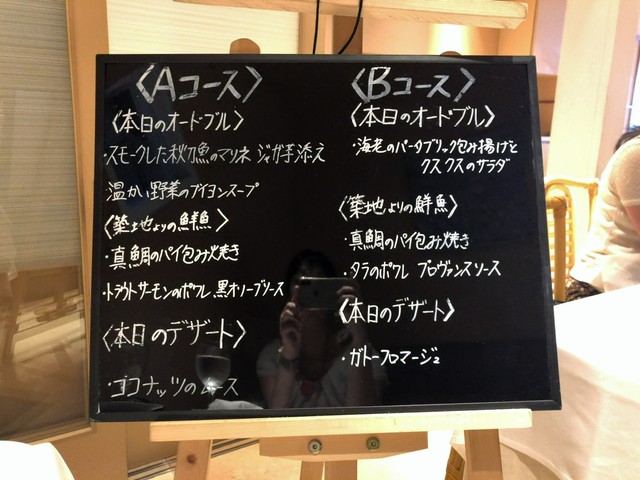 〈Aコース〉
〈本日のオードブル〉
・スモークした秋刀魚のマリネ ジャガ芋添え
温かい野菜のブイヨンスープ
〈築地よりの鮮魚〉
・真鯛のパイ包み焼き
・トラウトサーモンのポワレ 黒オリーブソース
〈本日のデザート〉
・ココナッツのムース
〈Bコース〉
〈本日のオードブル〉
・海老のパータブリック包み揚げと
クスクスのサラダ
〈築地よりの鮮魚〉
・真鯛のパイ包み焼き
・タラのポワレ プロヴァンスソース
〈本日のデザート〉
・ガトーフロマージュ